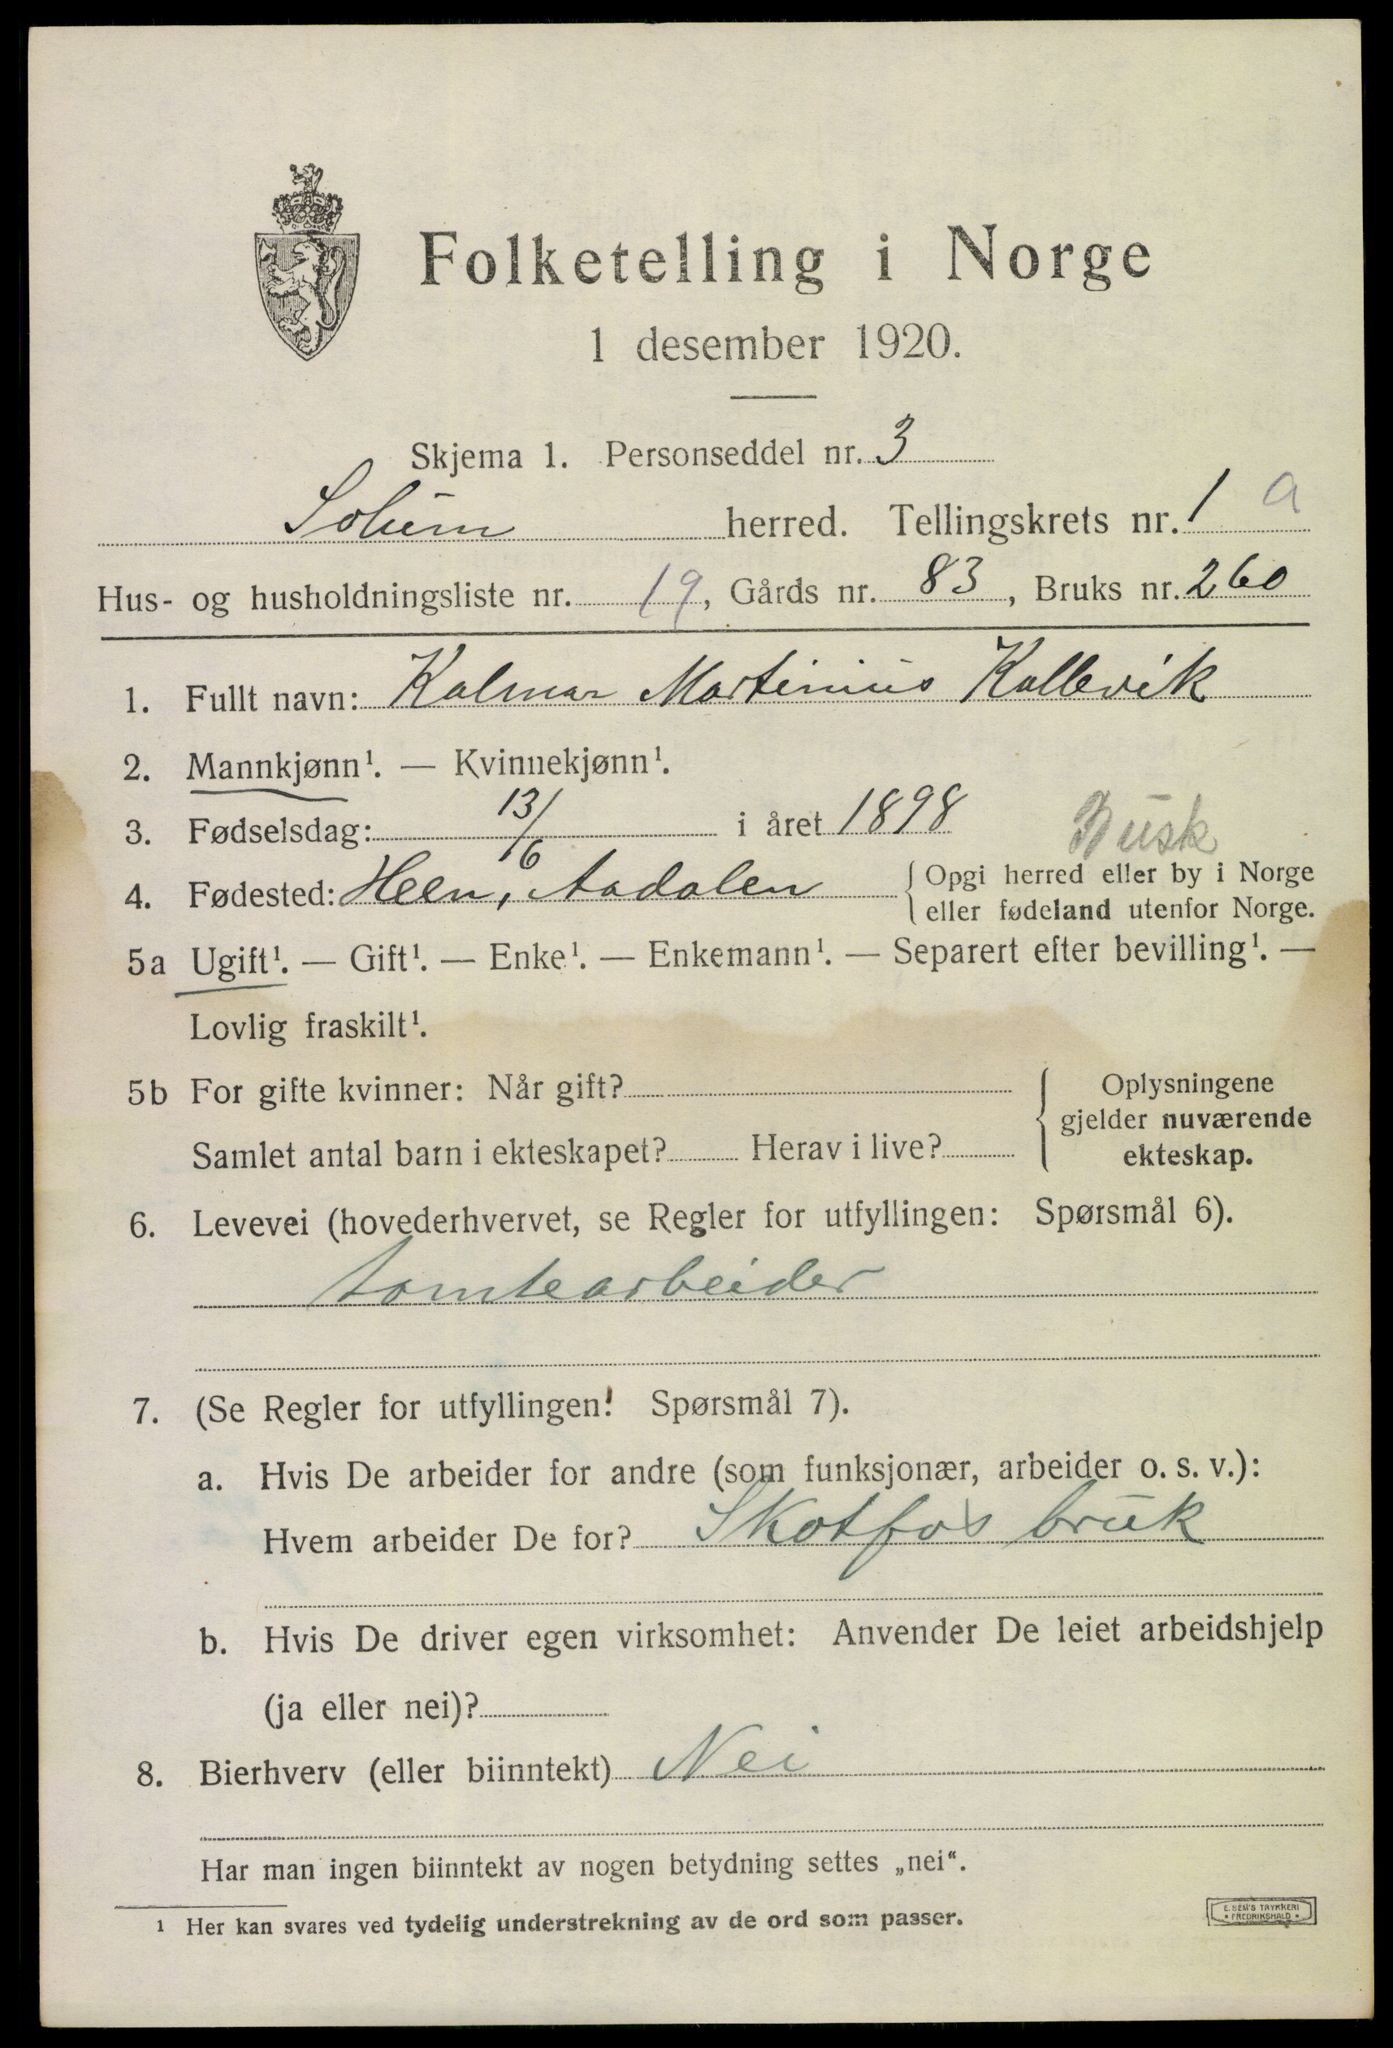 Folketelling i Norge
1 desember 1920.
Skjema 1. Personseddel nr. 3
Solum herred. Tellingskrets nr. 1 a
Hus- og husholdningsliste nr. 19, Gårds nr. 83, Bruks nr. 260
1. Fullt navn: Kalmar Martinius Kallevik
2. Mannkjønn¹. — Kvinnekjønn¹.
3. Fødselsdag: 13/6 i året 1898
Busk
4. Fødested: Heen, Aadalen { Opgi herred eller by i Norge
eller fødeland utenfor Norge.
5a Ugift¹. — Gift¹. — Enke¹. — Enkemann¹. — Separert efter bevilling¹. —
Lovlig fraskilt¹.
5b For gifte kvinner: Når gift? { Oplysningene
gjelder nuværende
Samlet antal barn i ekteskapet? Herav i live? ekteskap.
6. Levevei (hovederhvervet, se Regler for utfyllingen: Spørsmål 6).
tomtearbeider
7. (Se Regler for utfyllingen! Spørsmål 7).
a. Hvis De arbeider for andre (som funksjonær, arbeider o. s. v.):
Hvem arbeider De for? Skotfos bruk
b. Hvis De driver egen virksomhet: Anvender De leiet arbeidshjelp
(ja eller nei)?
8. Bierhverv (eller biinntekt) Nei
Har man ingen biinntekt av nogen betydning settes „nei“.
¹ Her kan svares ved tydelig understrekning av de ord som passer.
E. SEM'S TRYKKERI
FREDRIKSHALD